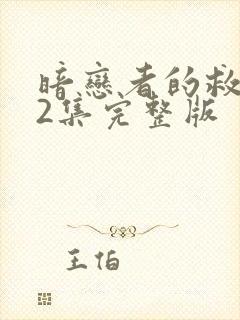 暗戀者的救
2集完整版
王伯